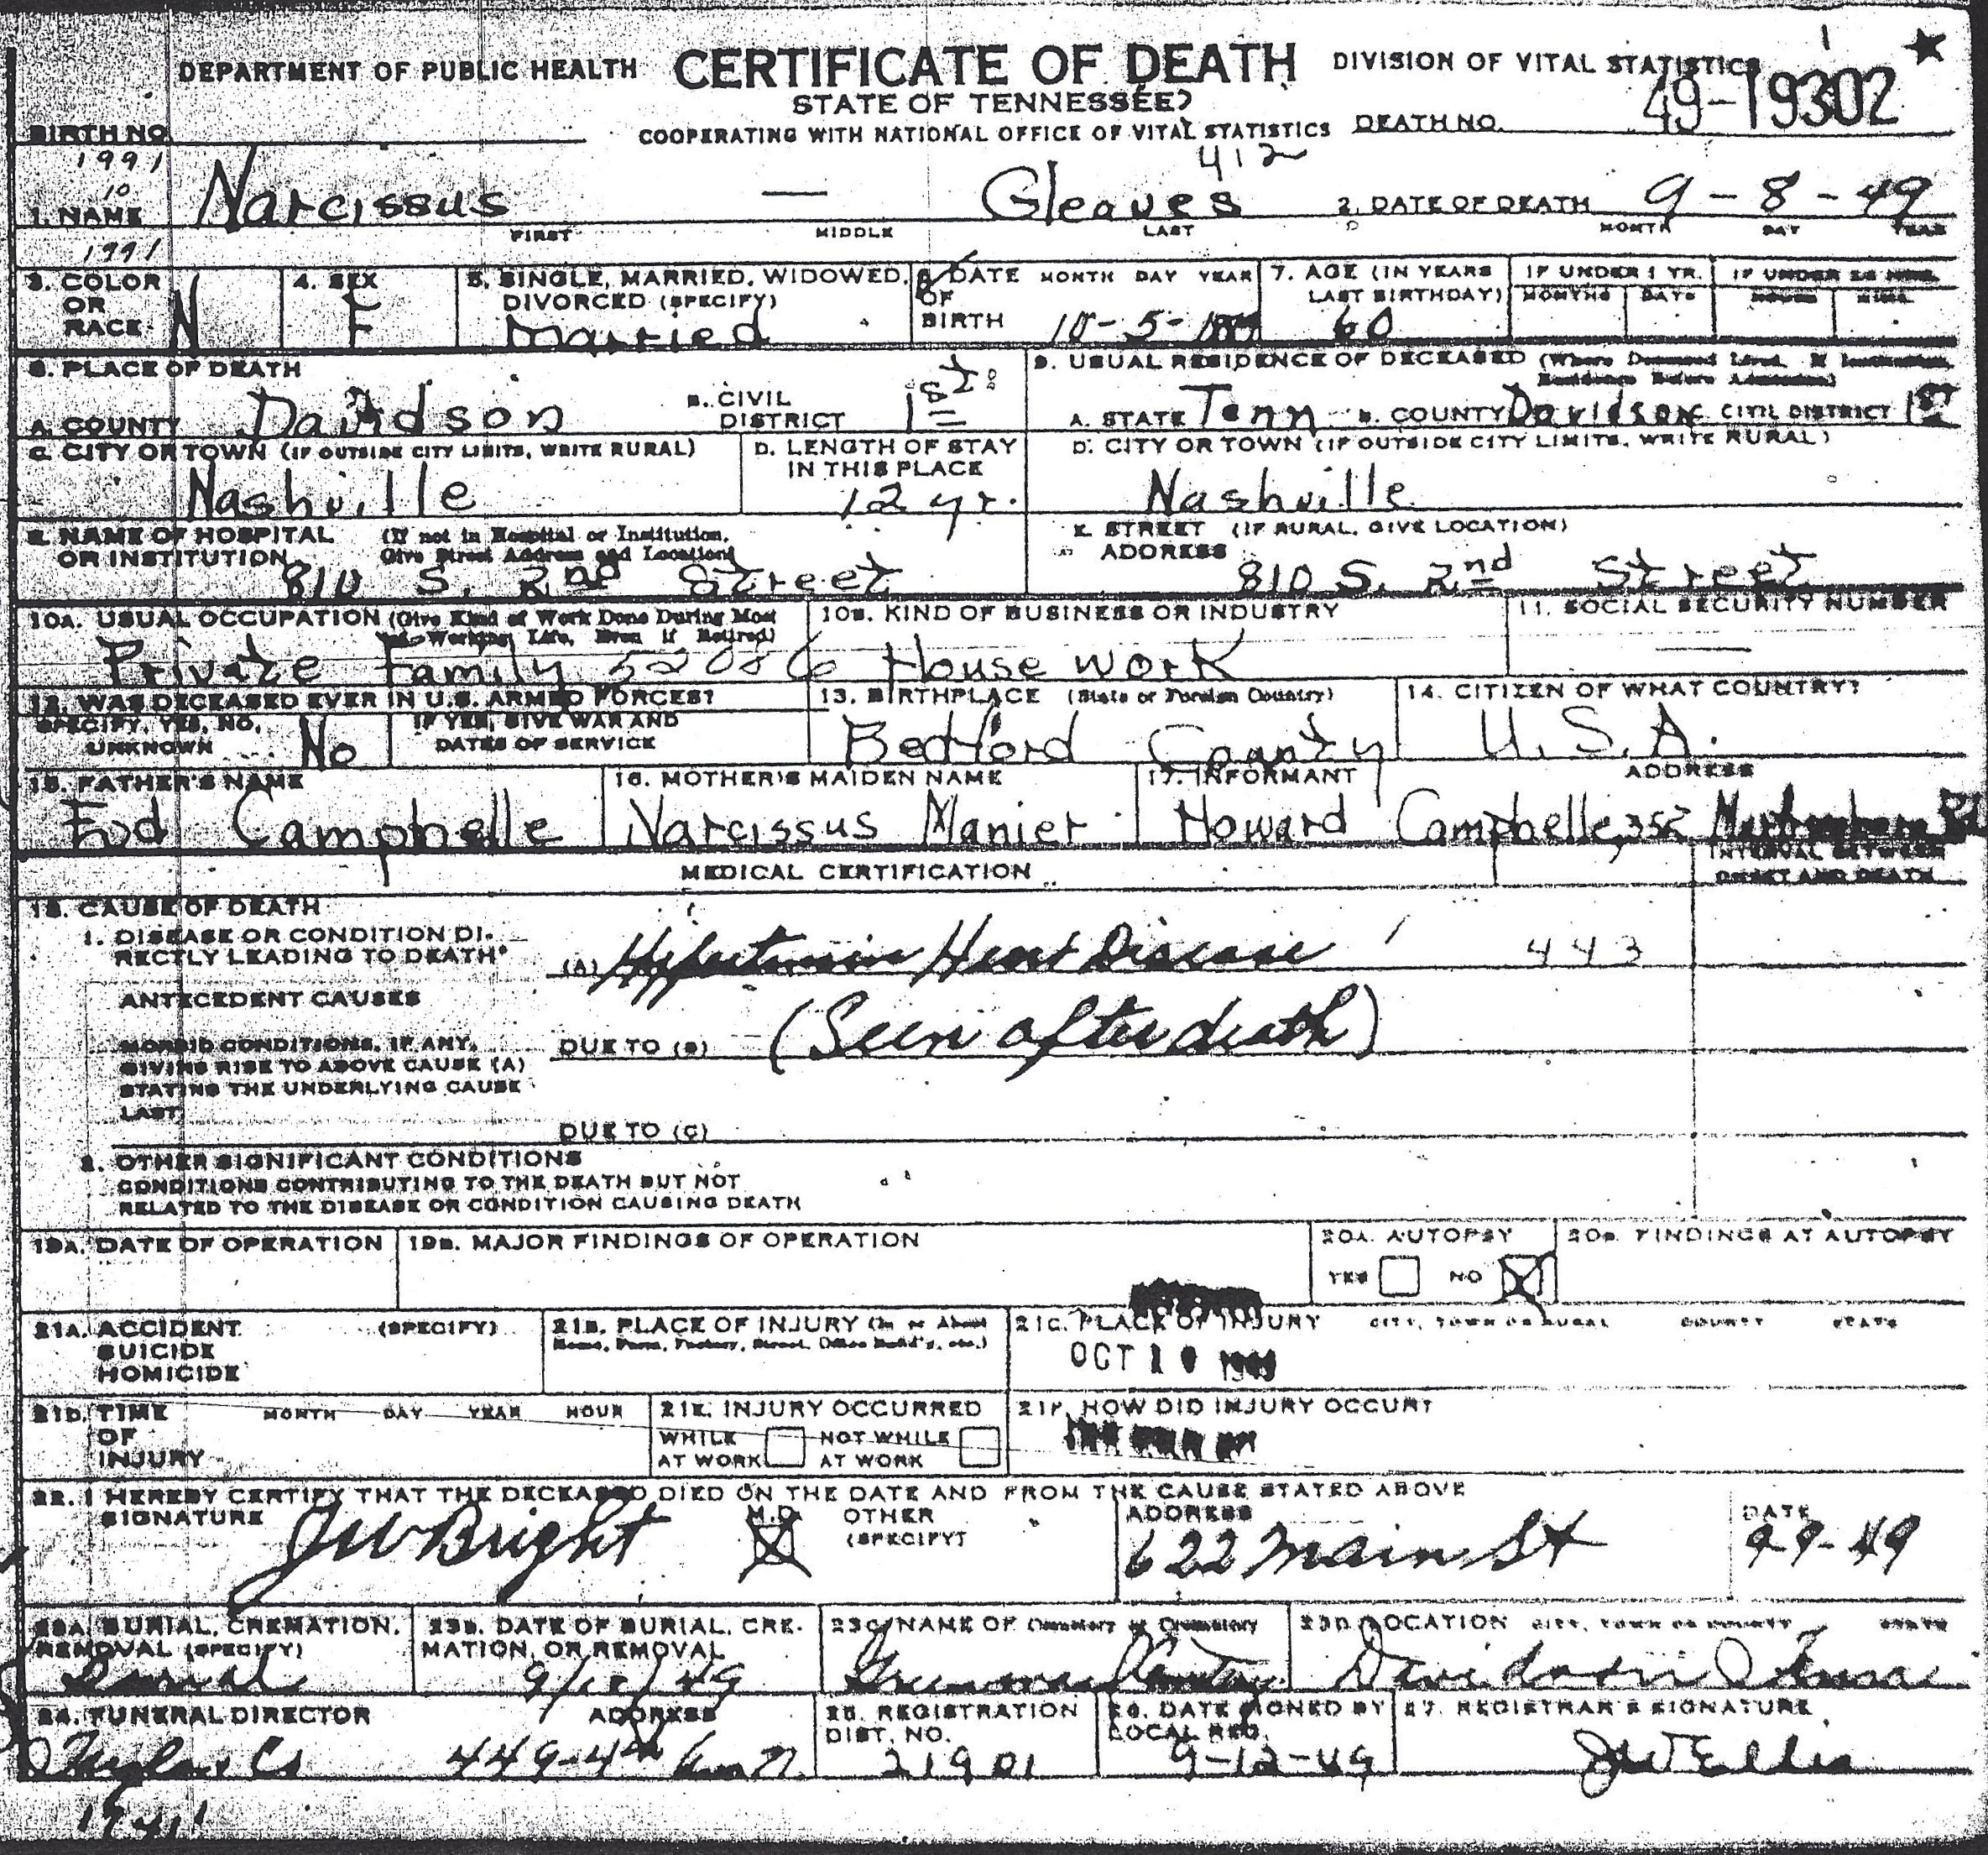 DEPARTMENT OF PUBLIC HEALTH CERTIFICATE OF DEATH DIVISION OF VITAL STATISTICS
STATE OF TENNESSEE
49-19302
BIRTH NO. COOPERATING WITH NATIONAL OFFICE OF VITAL STATISTICS DEATH NO.
1991 412
10
1. NAME Narcissus — Gleaves 2. DATE OF DEATH 9-8-49
FIRST MIDDLE LAST MONTH DAY YEAR
1991
3. COLOR OR RACE N 4. SEX F 5. SINGLE, MARRIED, WIDOWED, DIVORCED (SPECIFY) Married 6. DATE OF BIRTH MONTH DAY YEAR 10-5- 7. AGE (IN YEARS LAST BIRTHDAY) 60 IF UNDER 1 YR. MONTHS DAYS IF UNDER 24 HRS. HOURS MINS.
8. PLACE OF DEATH 9. USUAL RESIDENCE OF DECEASED (Where Deceased Lived. If Institution, Residence Before Admission)
A. COUNTY Davidson B. CIVIL DISTRICT 1st A. STATE Tenn B. COUNTY Davidson C. CIVIL DISTRICT 1st
C. CITY OR TOWN (IF OUTSIDE CITY LIMITS, WRITE RURAL) Nashville D. LENGTH OF STAY IN THIS PLACE 12 yr. D. CITY OR TOWN (IF OUTSIDE CITY LIMITS, WRITE RURAL) Nashville
E. NAME OF HOSPITAL OR INSTITUTION (If not in Hospital or Institution, Give Street Address and Location) 810 S. 2nd Street E. STREET ADDRESS (IF RURAL, GIVE LOCATION) 810 S. 2nd Street
10A. USUAL OCCUPATION (Give Kind of Work Done During Most of Working Life, Even if Retired) Private Family 10B. KIND OF BUSINESS OR INDUSTRY House work 11. SOCIAL SECURITY NUMBER —
12. WAS DECEASED EVER IN U.S. ARMED FORCES? SPECIFY, YES, NO, UNKNOWN No IF YES, GIVE WAR AND DATES OF SERVICE 13. BIRTHPLACE (State or Foreign Country) Bedford County 14. CITIZEN OF WHAT COUNTRY? U.S.A.
15. FATHER'S NAME Campbelle 16. MOTHER'S MAIDEN NAME Narcissus Manier 17. INFORMANT ADDRESS Howard Campbelle, 352
MEDICAL CERTIFICATION INTERVAL BETWEEN ONSET AND DEATH
18. CAUSE OF DEATH
1. DISEASE OR CONDITION DIRECTLY LEADING TO DEATH* (A) Hypertensive Heart Disease 443
ANTECEDENT CAUSES
MORBID CONDITIONS, IF ANY, GIVING RISE TO ABOVE CAUSE (A) STATING THE UNDERLYING CAUSE LAST. DUE TO (B) (Seen after death)
DUE TO (C)
2. OTHER SIGNIFICANT CONDITIONS
CONDITIONS CONTRIBUTING TO THE DEATH BUT NOT
RELATED TO THE DISEASE OR CONDITION CAUSING DEATH
19A. DATE OF OPERATION 19B. MAJOR FINDINGS OF OPERATION 20A. AUTOPSY YES NO 20B. FINDINGS AT AUTOPSY
21A. ACCIDENT SUICIDE HOMICIDE (SPECIFY) 21B. PLACE OF INJURY (In or About Home, Farm, Factory, Street, Office Build'g, etc.) 21C. PLACE OF INJURY CITY, TOWN OR RURAL COUNTY STATE
OCT 10 1949
21D. TIME OF INJURY MONTH DAY YEAR HOUR 21E. INJURY OCCURRED WHILE AT WORK NOT WHILE AT WORK 21F. HOW DID INJURY OCCUR?
22. I HEREBY CERTIFY THAT THE DECEASED DIED ON THE DATE AND FROM THE CAUSE STATED ABOVE
SIGNATURE JW Bright M.D. OTHER (SPECIFY) ADDRESS 622 Main St DATE 9-9-49
23A. BURIAL, CREMATION, REMOVAL (SPECIFY) Burial 23B. DATE OF BURIAL, CREMATION, OR REMOVAL 9/12/49 23C. NAME OF Cemetery or Crematory 23D. LOCATION CITY, TOWN OR COUNTY STATE Davidson
24. FUNERAL DIRECTOR ADDRESS Taylor Co 449-4th Ave N. 25. REGISTRATION DIST. NO. 21901 26. DATE SIGNED BY LOCAL REG. 9-12-49 27. REGISTRAR'S SIGNATURE JW Ellis